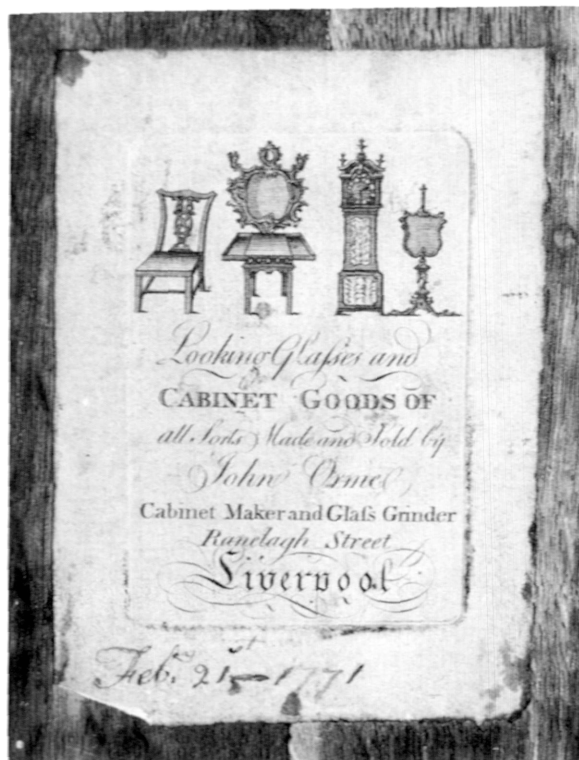 Looking Glaſses and
CABINET GOODS OF
all Sorts Made and Sold by
John Orme
Cabinet Maker and Glaſs Grinder
Ranelagh Street
Liverpool
Feb.ʳʸ 21ˢᵗ — 1771